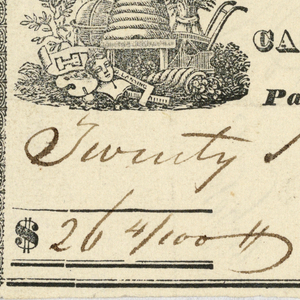 CA
Pa
Twenty
$ 26 4/100